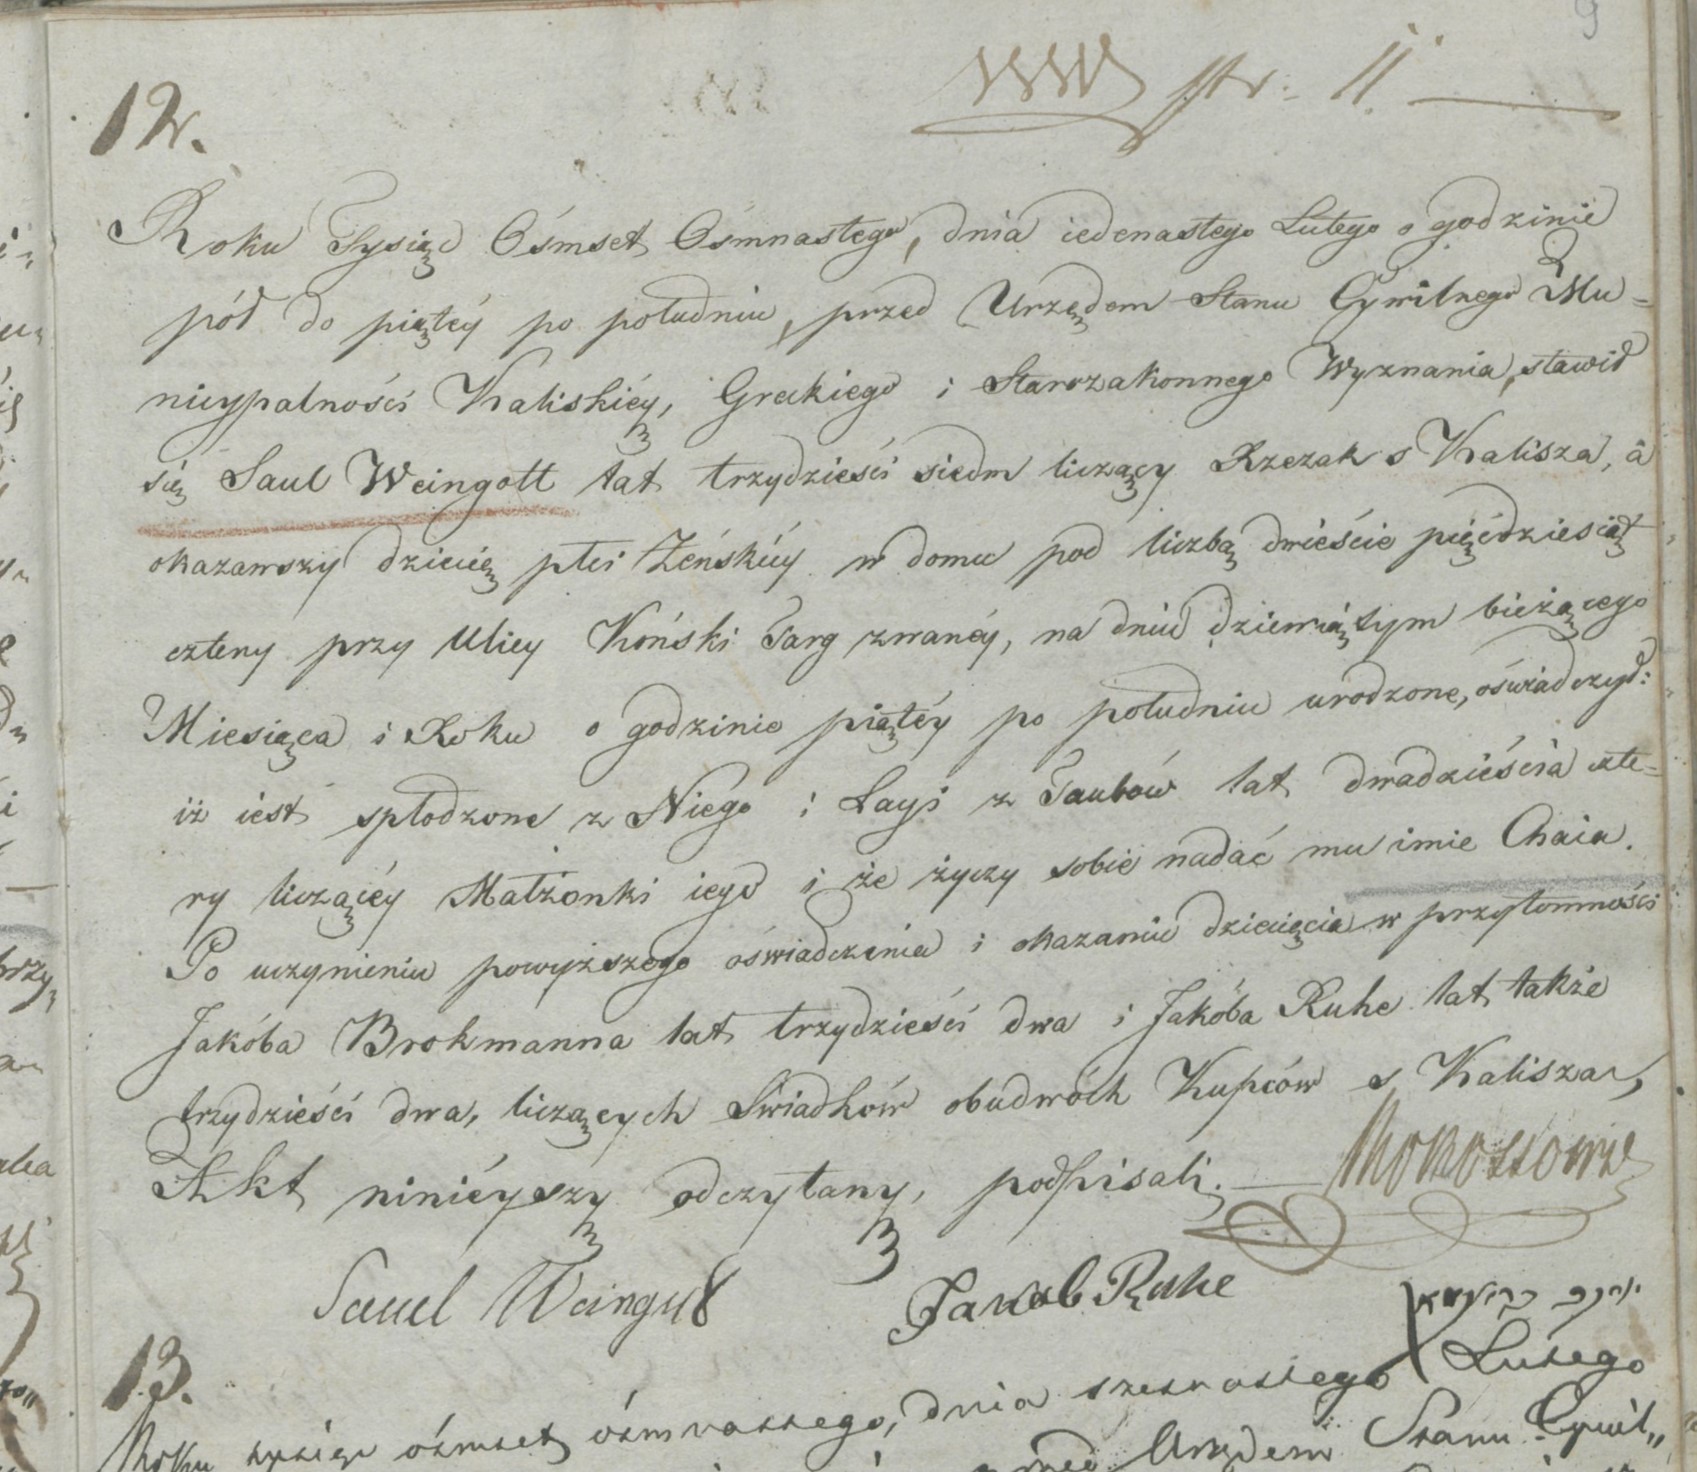 9
str. 11.
12.
Roku Tysiąc Ośmset Osmnastego, dnia iedenastego Lutego o godzinie
pół do piątéy po południu, przed Urzędem Stanu Cywilnego Mu-
nicypalności Kaliskiéy, Greckiego i Starozakonnego Wyznania, stawił
się Saul Weingott lat trzydzieści siedm liczący Rzezak s Kalisza, à
okazawszy dziecię płci Żeńskiéy w domu pod liczbą dwieście pięćdziesiąt
cztery przy Ulicy Koński Targ zwanéy, na dniu dziewiątym bieżącego
Miesiąca i Roku o godzinie piątéy po południu urodzone, oświadczył:
iż iest spłodzone z Niego i Layi z Taubów lat dwadzieścia czte-
ry liczącéy Małżonki iego i że życzy sobie nadać mu imie Chaia.
Po uczynieniu powyższego oświadczenia i okazaniu dziecięcia w przytomności
Jakóba Brokmanna lat trzydzieści dwa i Jakóba Ruhe lat także
trzydzieści dwa, liczących Swiadków obudwóch Kupców s Kalisza,
Akt ninieyszy odczytany, podpisali.
Sauel Weingut
Jakob Ruhe
יעקב
13.
Roku tysiąc ośmset ośmnastego, dnia szesnastego Lutego
Urzędem Stanu Cywil„